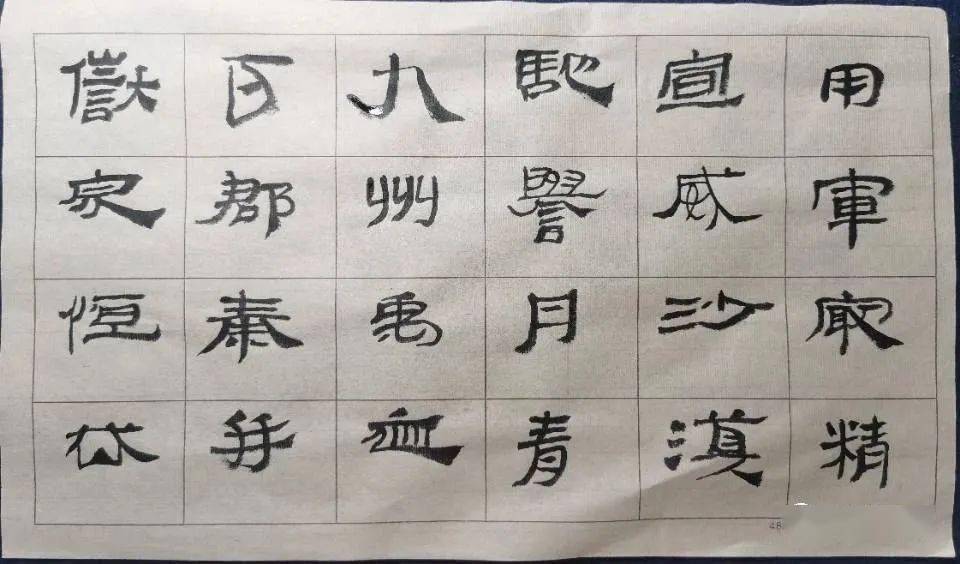 用軍最精
宣威沙漠
馳譽丹青
九州禹跡
百郡秦并
嶽宗恒岱
48